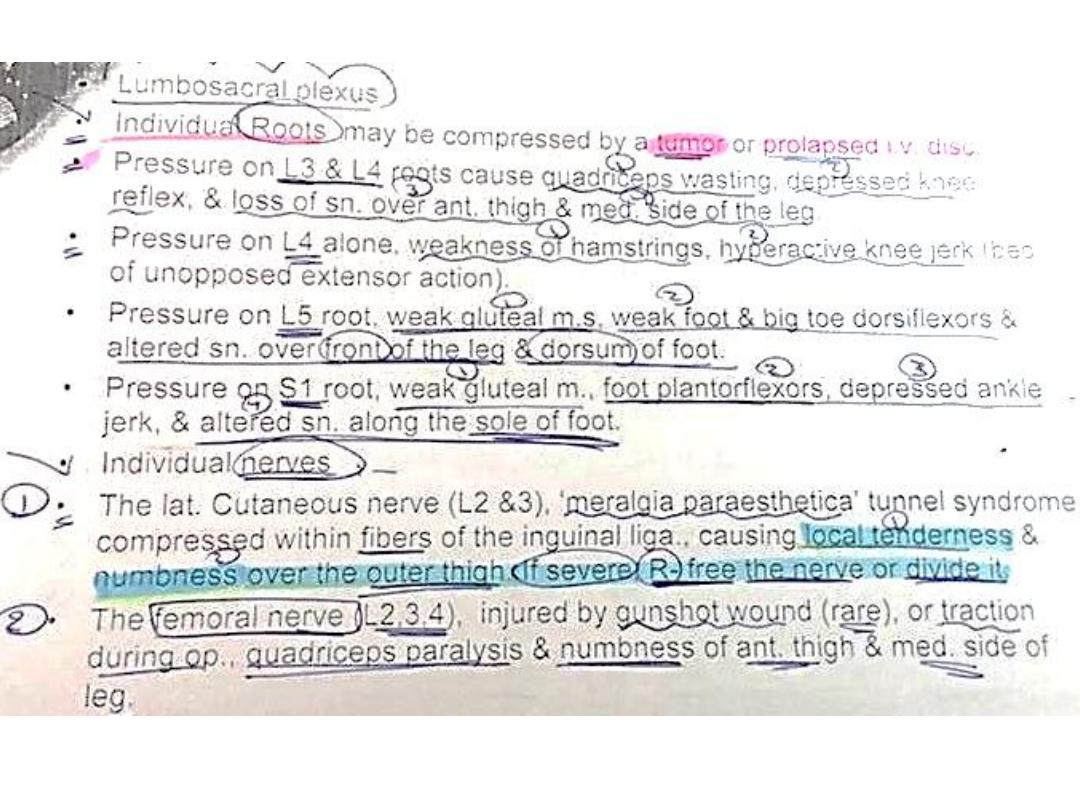 Lumbosacral plexus
Individual Roots may be compressed by a tumor or prolapsed i.v. disc.
Pressure on L3 & L4 roots cause quadriceps wasting, depressed knee
reflex, & loss of sn. over ant. thigh & med. side of the leg
Pressure on L4 alone, weakness of hamstrings, hyperactive knee jerk (bec
of unopposed extensor action).
Pressure on L5 root, weak gluteal m.s, weak foot & big toe dorsiflexors &
altered sn. over front of the leg & dorsum of foot.
Pressure on S1 root, weak gluteal m., foot plantorflexors, depressed ankle
jerk, & altered sn. along the sole of foot.
Individual nerves
① The lat. Cutaneous nerve (L2 &3), 'meralgia paraesthetica' tunnel syndrome
compressed within fibers of the inguinal liga., causing local tenderness &
numbness over the outer thigh. If severe R- free the nerve or divide it.
② The femoral nerve (L2,3,4), injured by gunshot wound (rare), or traction
during op., quadriceps paralysis & numbness of ant. thigh & med. side of
leg.